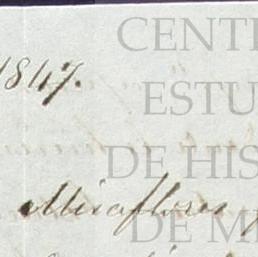 CENT
1847.
ESTU
DE HIS
Miraflores y
DE ME